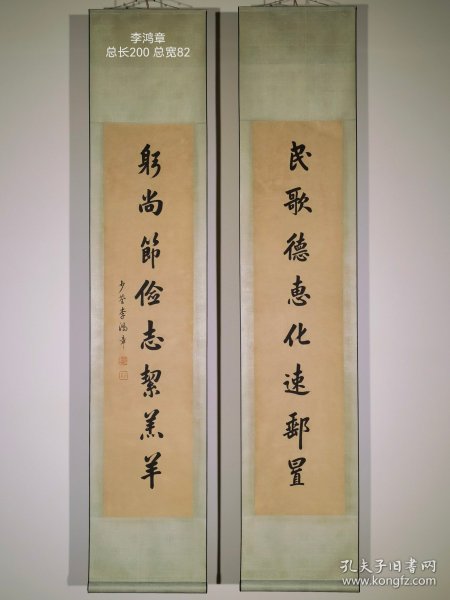 李鸿章
总长200 总宽82
民歌德惠化速郵置
躬尚節儉志絜羔羊
少荃李鴻章
孔夫子旧书网
www.kongfz.com